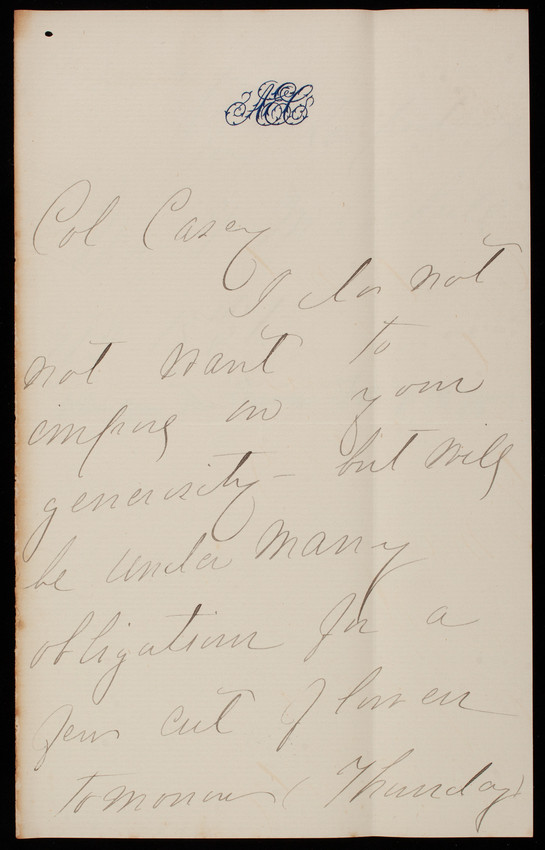 Col Casey
I do not
not want to
impose on your
generosity - but will
be under many
obligations for a
few cut flowers
tomorrow (Thursday)